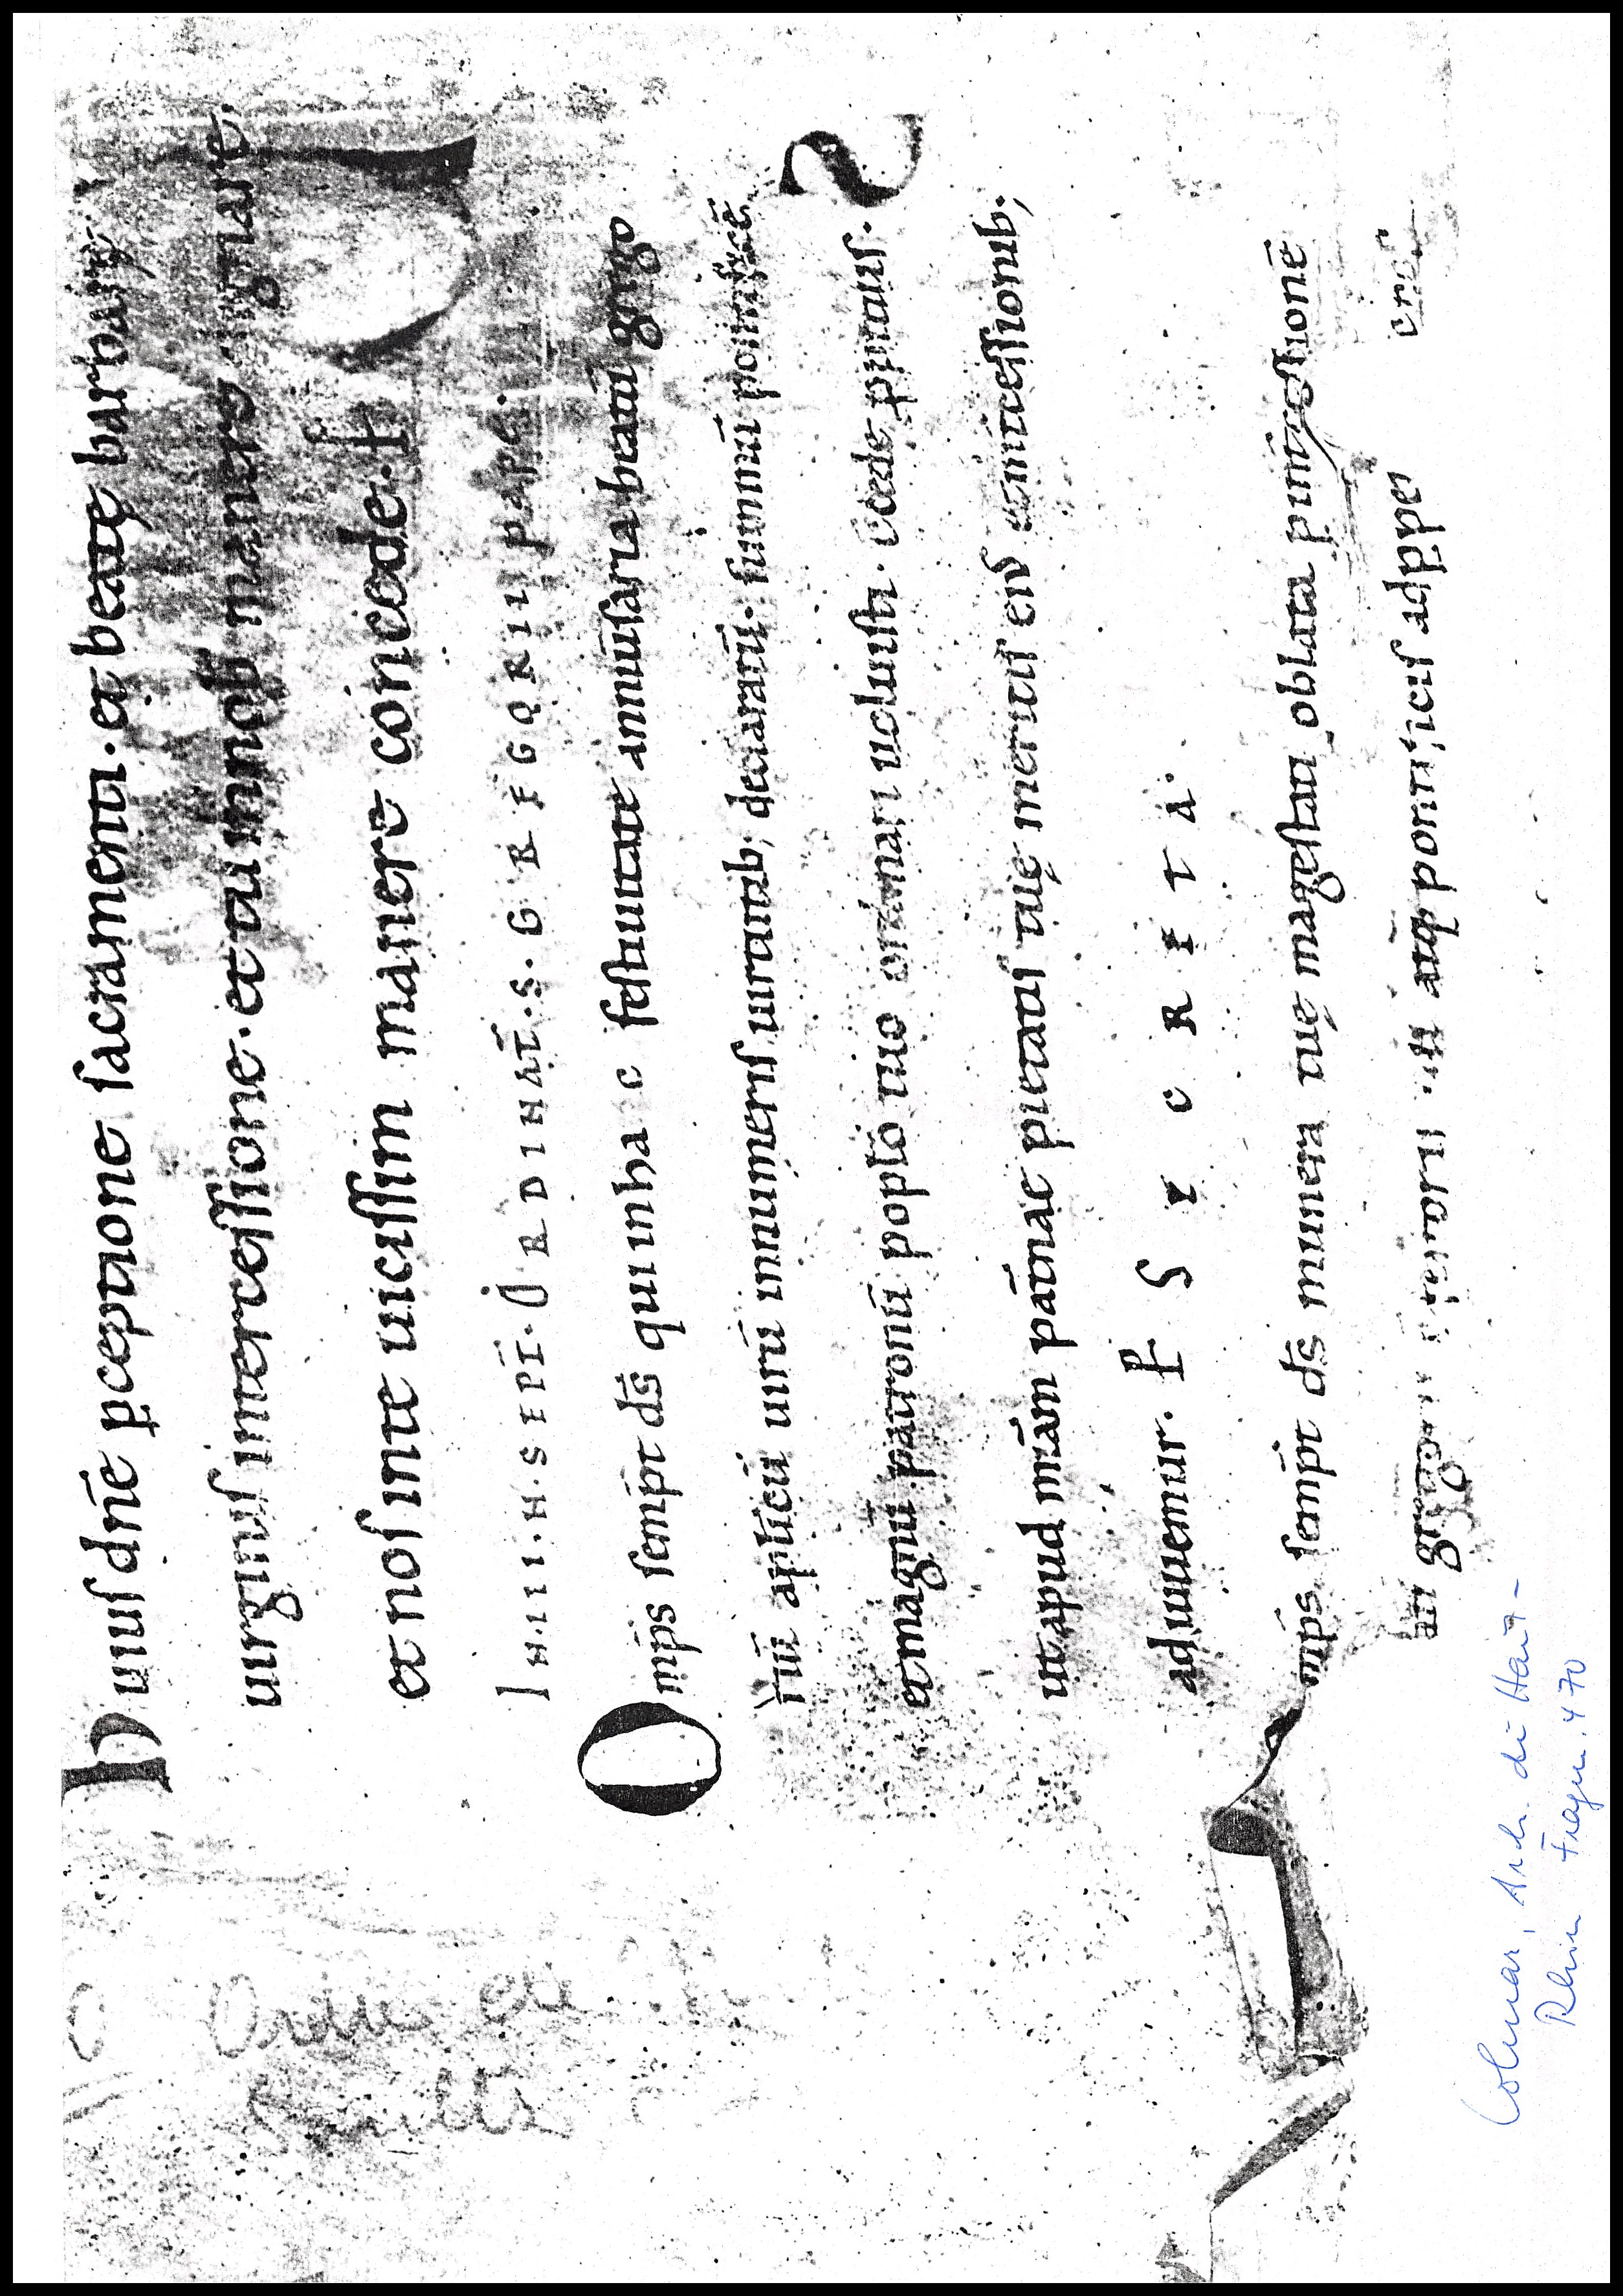 Huiuſ dn̄e p̲ceptione ſacramenti · et beatę barbarę
uirginiſ interceſſione · et tu in nob̄ manere dignare,
et noſ in te uiciſſim manere concede · p̲
IIII · N · SEPT̄ · ORDINAT̄ · S · GREGORII PAPĘ ·
Omp̄s ſemp̄t̄ ds̄ qui in hac feſtiuitate anniūſaria beati grego
rii ap̄licū uirū innumeriſ uirtutib; declaratū · ſummū pontificē
et magnū patronū pop̄lo tuo ordinari uoluiſti · c̄cede p̲pitiuſ ·
ut apud mīam pat̄nae pietatiſ tuę meritiſ eiuſ et int̄ceſſionib;
adiuuemur · P̲ SECRETA ·
mp̄s ſemp̄t̄ ds̄ munera tuę mageſtati oblata p̲ int̄ceſſionē
ati gregorii atq; pontificiſ ad p̲pe
Colmar, Arch. du Haut-
Rhin Fragm. 470